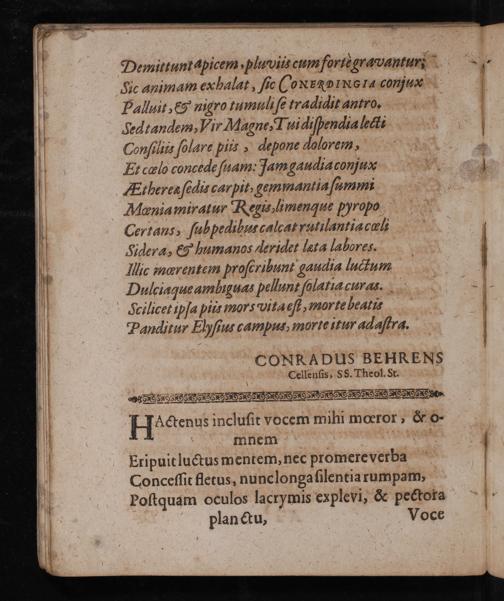 Demittunt apicem, pluviis cum fortè gravantur;
Sic animam exhalat, sic CONERDINGIA conjux
Palluit, & nigro tumuli se tradidit antro.
Sed tandem, Vir Magne, Tui dispendia lecti
Consiliis solare piis, depone dolorem,
Et cœlo concede suam: Jam gaudia conjux
Æthereæ sedis carpit, gemmantia summi
Mœnia miratur Regis, limenque pyropo
Certans, sub pedibus calcat rutilantia cœli
Sidera, & humanos deridet læta labores.
Illic mœrentem proscribunt gaudia luctum
Dulciaque ambiguas pellunt solatia curas.
Scilicet ipsa piis mors vita est, morte beatis
Panditur Elysius campus, morte itur ad astra.
CONRADUS BEHRENS
Cellensis, SS. Theol. St.
HActenus inclusit vocem mihi mœror, & o-
mnem
Eripuit luctus mentem, nec promere verba
Concessit fletus, nunc longa silentia rumpam,
Postquam oculos lacrymis explevi, & pectora
planctu,
Voce